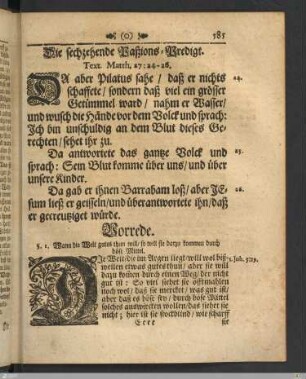 (0) 585
Die sechzehende Paßions-Predigt.
Text. Matth. 27: 24-26.
DA aber Pilatus sahe / daß er nichts 24.
schaffete / sondern daß viel ein grösser
Getümmel ward / nahm er Wasser /
und wusch die Hände vor dem Volck und sprach:
Ich bin unschuldig an dem Blut dieses Ge-
rechten / sehet ihr zu.
Da antwortete das gantze Volck und 25.
sprach: Sein Blut komme über uns / und über
unsere Kinder.
Da gab er ihnen Barrabam loß / aber JE- 26.
sum ließ er geisseln / und überantwortete ihn / daß
er gecreutziget würde.
Vorrede.
§. 1. Wann die Welt gutes thun will / so will sie darzu kommen durch
böse Mittel.
Die Welt / die im Argen liegt / will wol biß- 1. Joh. 5:19.
weilen etwas gutes thun / aber sie will
darzu kommen durch einen Weg / der nicht
gut ist: So viel siehet sie offtmahlen
noch wol / daß sie mercket / was gut ist /
aber daß es böß sey / durch böse Mittel
solches auswircken wollen / das siehet sie
nicht; hier ist sie stockblind / wie scharff
Eeee sie